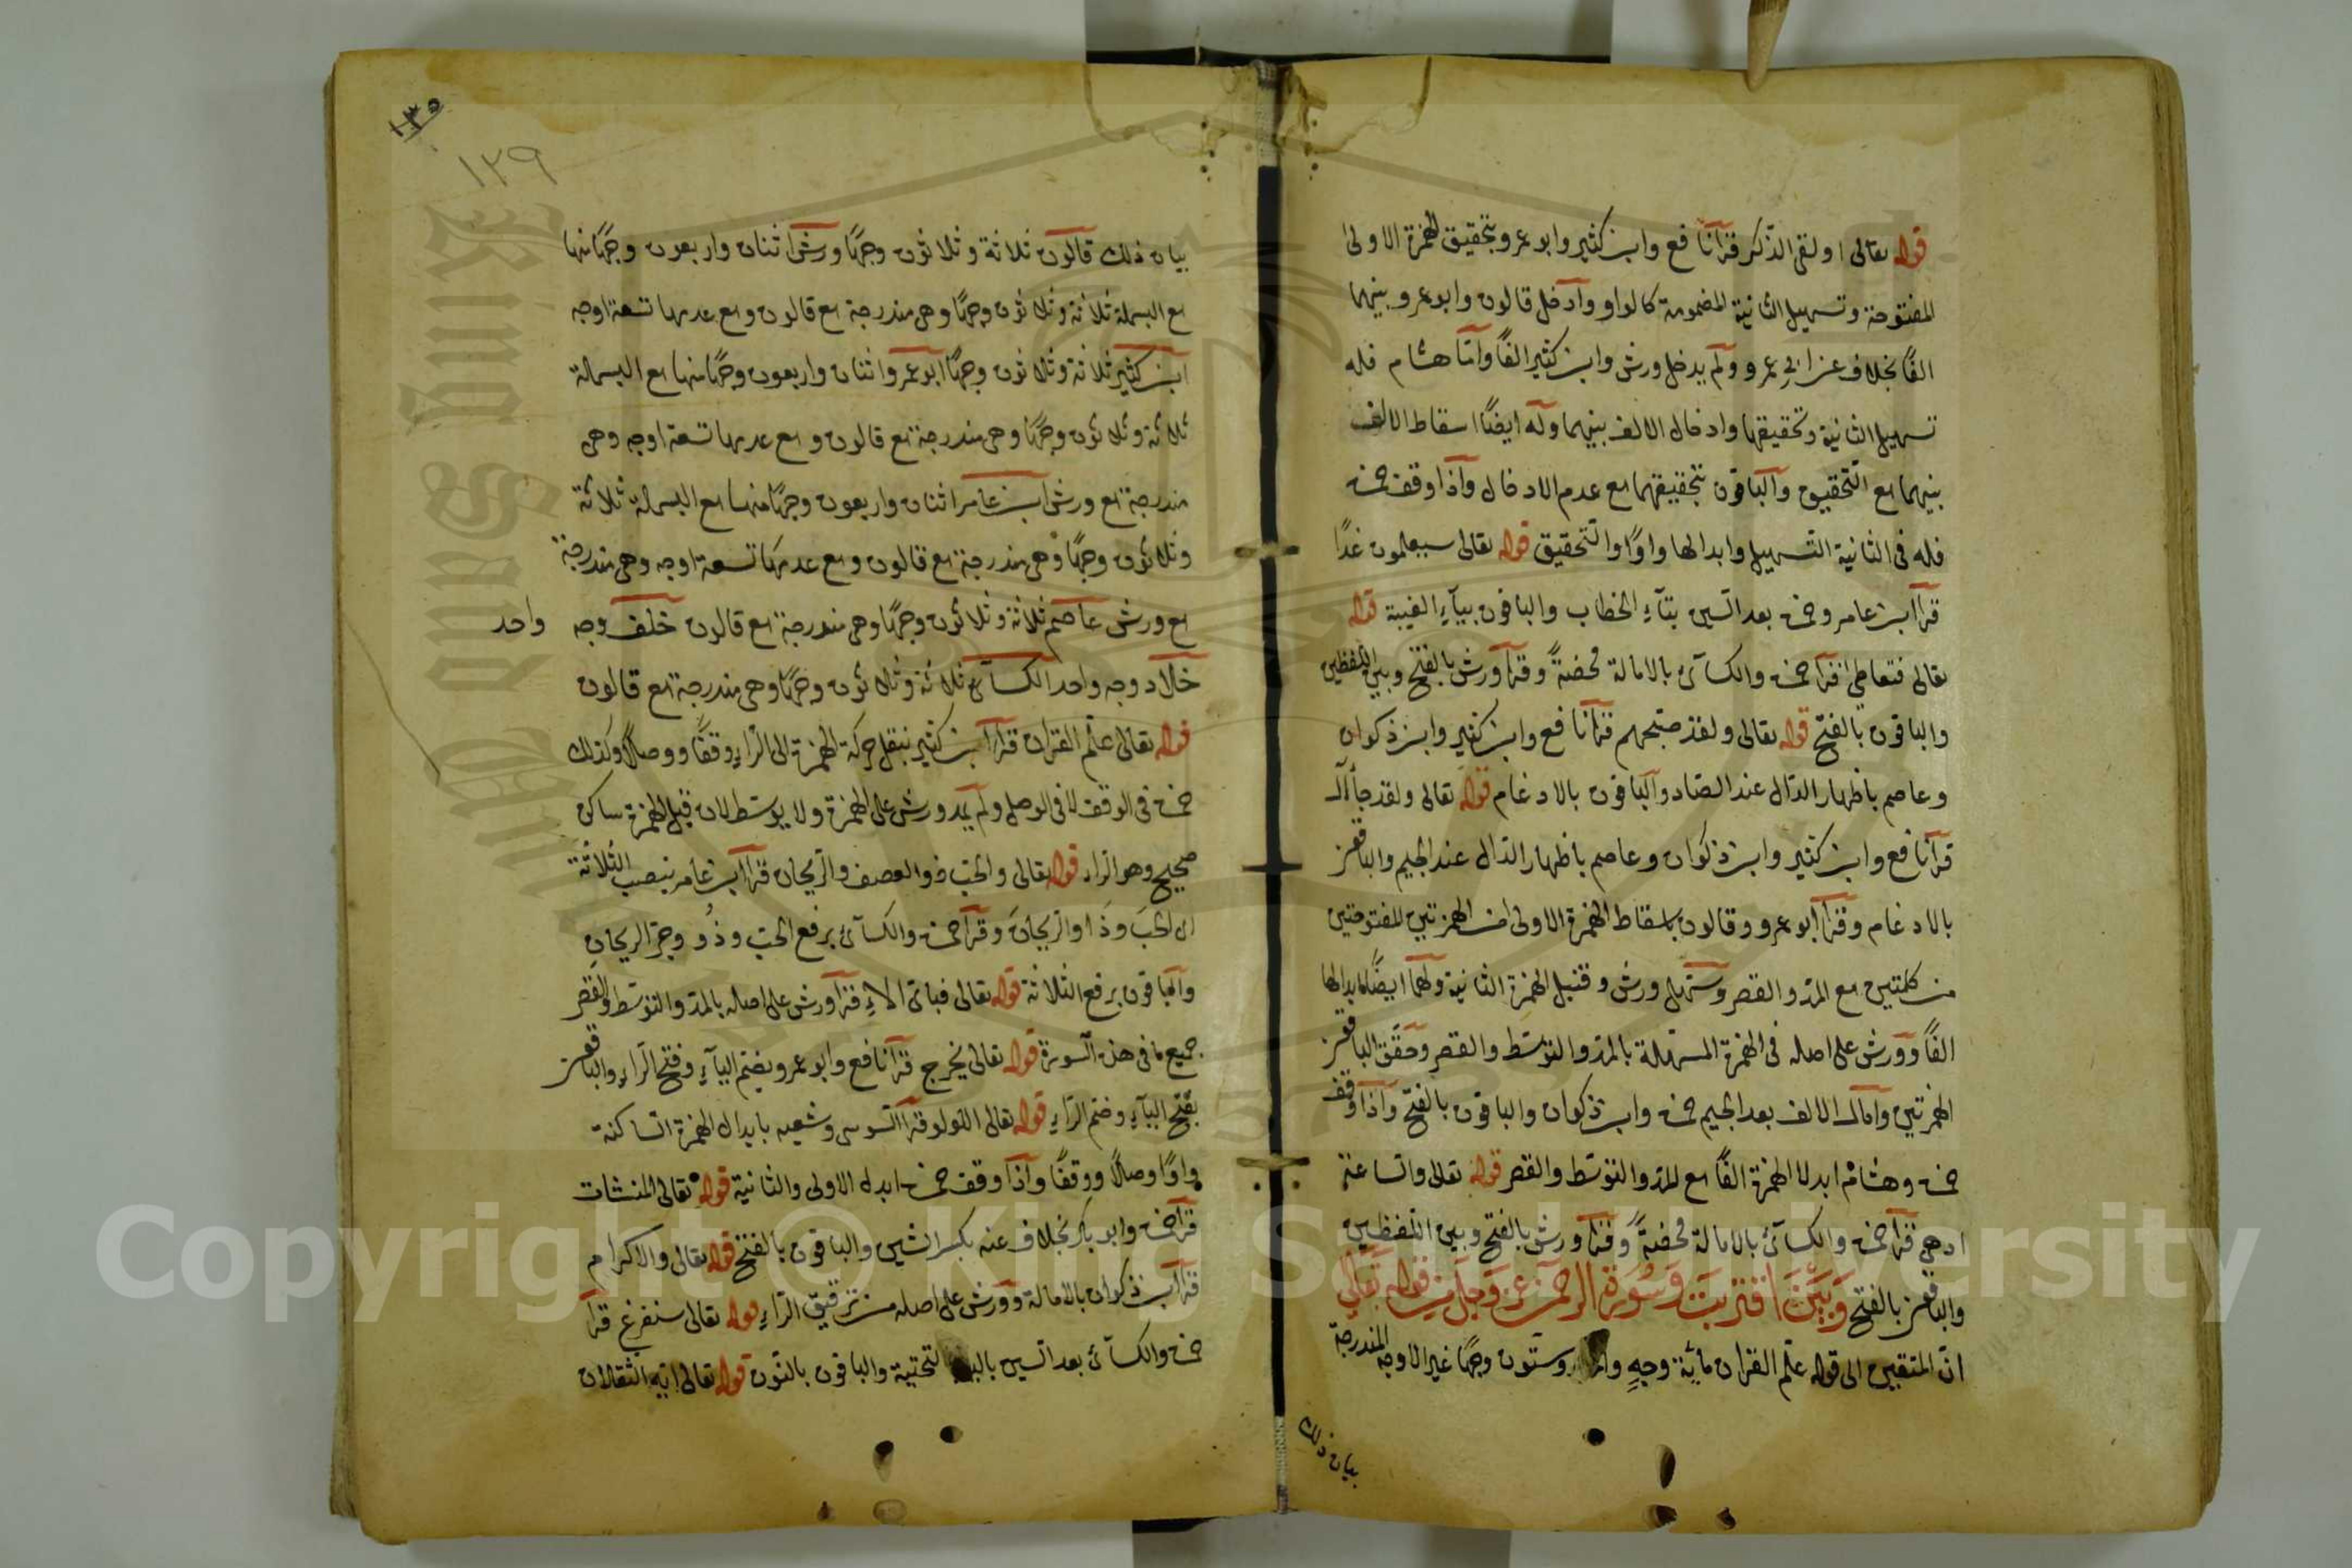 قوله تعالى اولقى الذكر قرآ نافع وابن كثير وابو عمرو بتحقيق الهمزة الاولى
المفتوحة وتسهيل الثانية المضمومة كالواو وآدخل قالون وابو عمرو بينهما
الفًا بخلاف عن ابى عمرو ولم يدخل ورش وابن كثير الفًا وآمّا هشام فله
تسهيل الثانية وتحقيقها وادخال الالف بينهما وله ايضًا اسقاط الالف
بينهما مع التحقيق والباقون بتحقيقهما مع عدم الادخال وآذا وقف حمزة
فله فى الثانية التسهيل وابدالها واوًا والتحقيق قوله تعالى سيعلمون غدًا
قرآ ابن عامر وحمزة بعد السين بتآءِ الخطاب والباقون بيآءِ الغيبة قوله
تعالى فتعاطى قرآ حمزة والكسآئ بالامالة محضةً وقرآ ورش بالفتح وبين اللفظين
والباقون بالفتح قوله تعالى ولقد صبّحهم قرآ نافع وابن كثير وابن ذكوان
وعاصم باظهار الدال عند الصاد والباقون بالادغام قوله تعالى ولقد جآ آل
قرآ نافع وابن كثير وابن ذكوان وعاصم باظهار الدال عند الجيم والباقون
بالادغام وقرآ ابو عمرو وقالون باسقاط الهمزة الاولى من الهمزتين المفتوحتين
من كلمتين مع المدّ والقصر وسهّل ورش وقنبل الهمزة الثانية ولهما ايضًا ابدالها
الفًا وورش على اصله فى الهمزة المسهلة بالمدّ والتوسّط والقصر وحقّق الباقون
الهمزتين وآمال الالف بعد الجيم حمزة وابن ذكوان والباقون بالفتح وآذا وقف
حمزة وهشام ابدلا الهمزة الفًا مع المدّ والتوسّط والقصر قوله تعالى والساعة
ادهى قرآ حمزة والكسآئ بالامالة محضةً وقرآ ورش بالفتح وبين اللفظين
والباقون بالفتح وَبَيْنَ اقتربَت وَسُورَةِ الرحمن عزّ وَجَلّ مِن قوله تَعَالى
انّ المتقين الى قوله علّم القران مائة وجهٍ وستّون وجهًا غير الاوجه المندرجة
بيان ذلك
١٣٥
١٢٩
بيان ذلك قالون ثلاثة وثلاثون وجهًا ورش اثنان واربعون وجهًا منها
مع البسملة ثلاثة وثلاثون وجهًا وهى مندرجة مع قالون ومع عدمها تسعة اوجه
ابن كثير ثلاثة وثلاثون وجهًا ابو عمرو اثنان واربعون وجهًا منها مع البسملة
ثلاثة وثلاثون وجهًا وهى مندرجة مع قالون ومع عدمها تسعة اوجه وهى
مندرجة مع ورش ابن عامر اثنان واربعون وجهًا منها مع البسملة ثلاثة
وثلاثون وجهًا وهى مندرجة مع قالون ومع عدمها تسعة اوجه وهى مندرجة
مع ورش عاصم ثلاثة وثلاثون وجهًا وهى مندرجة مع قالون خلف وجه واحد
خلاد وجه واحد الكسآئ ثلاثة وثلاثون وجهًا وهى مندرجة مع قالون
قوله تعالى علّم القران قرآ ابن كثير بنقل حركة الهمزة الى الرّاءِ وقفًا ووصلًا وكذلك
حمزة فى الوقف لا فى الوصل ولم يمد ورش على الهمزة ولا يوسّط لان قبل الهمزة ساكن
صحيح وهو الراء قوله تعالى والحبّ ذو العصف والرّيحان قرآ ابن عامر بنصب الثلاثة
اى الحبَ وذَا والرّيحانَ وقرآ حمزة والكسآئ برفع الحبّ وذُو وجرّ الريحانِ
والباقون برفع الثلاثة قوله تعالى فباىّ الاءِ قرآ ورش على اصله بالمدّ والتوسّط والقصر
جميع ما فى هذه السّورة قوله تعالى يخرج قرآ نافع وابو عمرو بضمّ اليآءِ وفتح الرّاءِ والباقون
بفتح اليآءِ وضم الرّاءِ قوله تعالى اللولو قرآ السّوسى وشعبه بابدال الهمزة السّاكنة
واوًا وصلًا ووقفًا وآذا وقف حمزة ابدل الاولى والثانية قوله تعالى المنشات
قرآ حمزة وابو بكر بخلاف عنه بكسر الشين والباقون بالفتح قوله تعالى والاكرام
قرآ ابن ذكوان بالامالة وورش على اصله من ترقيق الرّاءِ قوله تعالى سنفرغ قرآ
حمزة والكسآئ بعد السين باليآء التحتية والباقون بالنّون قوله تعالى ايه الثقلان
Copyright © King Saud University